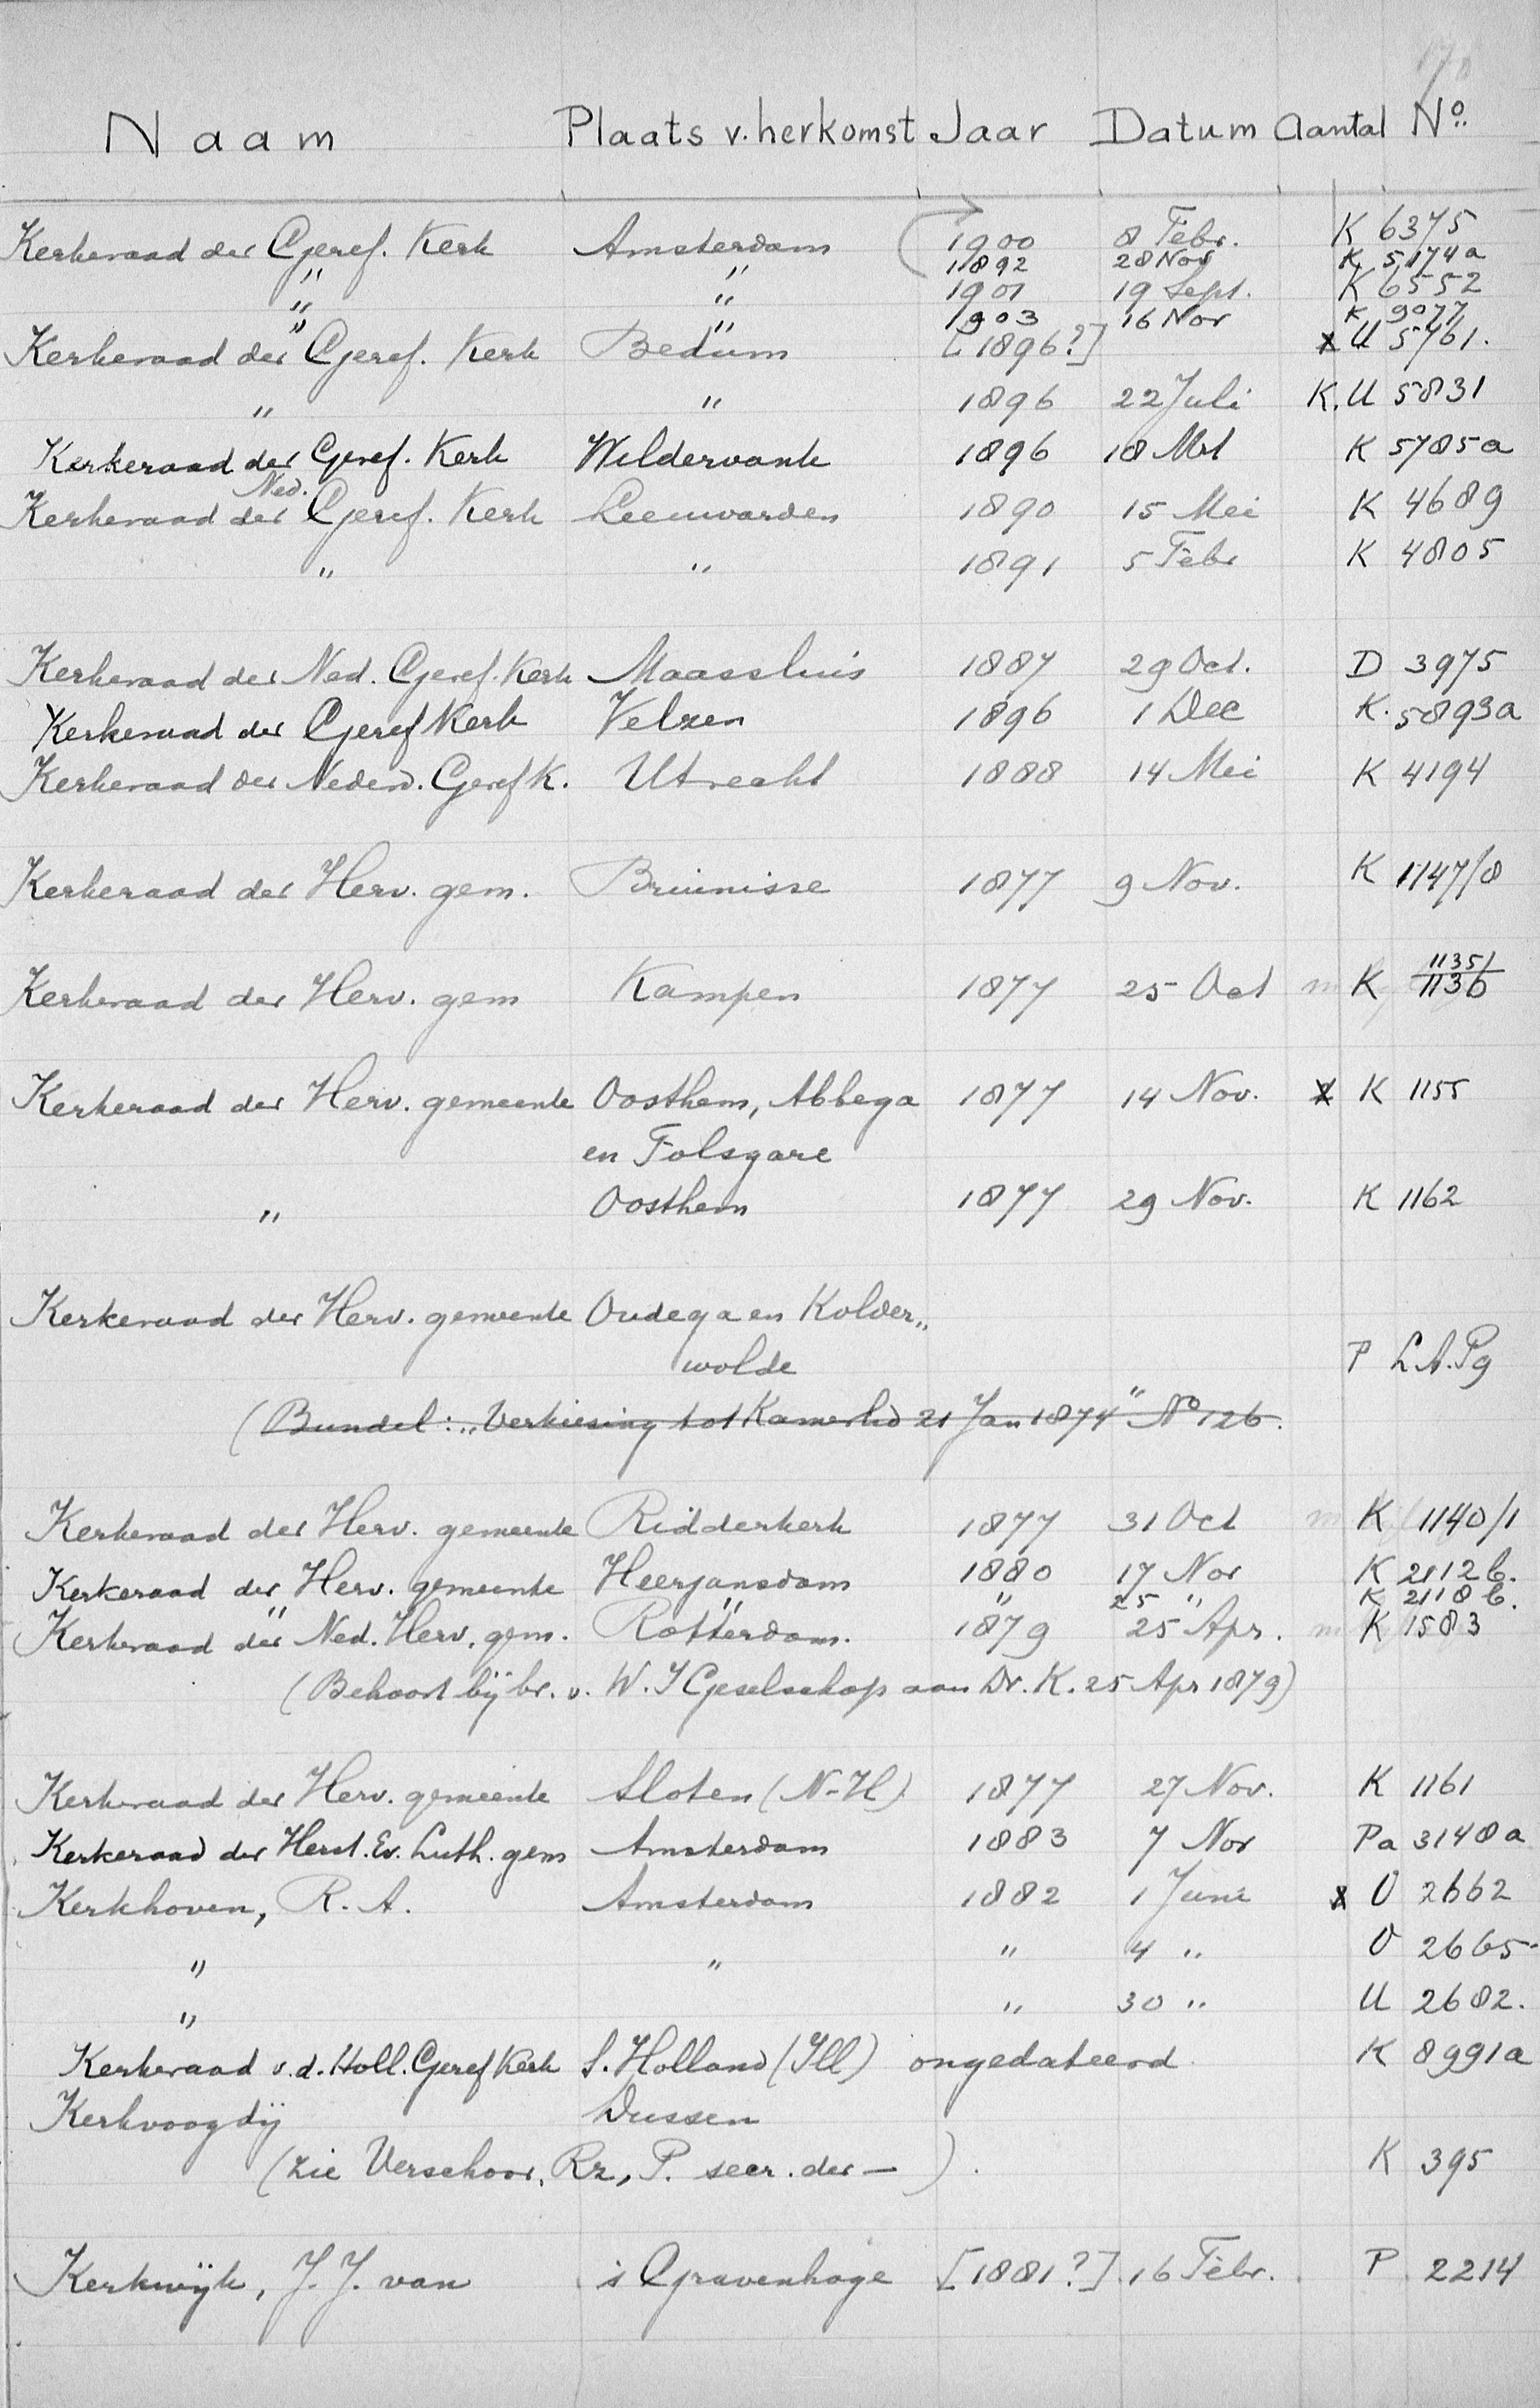 Naam Plaats v. herkomst Jaar Datum Aantal No.
Kerkeraad der Geref. Kerk Amsterdam 1900 8 Febr. K 6375
" " 1892 28 Nov K 5174a
" " 1901 19 Sept. K 6552
" " 1903 16 Nov K 9077
Kerkeraad der Geref. Kerk Bedum [1896?] X U 5761.
" " 1896 22 Juli K. U 5831
Kerkeraad der Geref. Kerk Wildervank 1896 18 Mrt K 5785a
Kerkeraad der Ned. Geref. Kerk Leeuwarden 1890 15 Mei K 4689
" " 1891 5 Febr K 4805
Kerkeraad der Ned. Geref. Kerk Maassluis 1887 29 Oct. D 3975
Kerkeraad der Geref Kerk Velzen 1896 1 Dec K. 5893a
Kerkeraad der Nederd. Geref K. Utrecht 1888 14 Mei K 4194
Kerkeraad der Herv. gem. Bruinisse 1877 9 Nov. K 1147/8
Kerkeraad der Herv. gem Kampen 1877 25 Oct K 1135/1136
Kerkeraad der Herv. gemeente Oosthem, Abbega 1877 14 Nov. X K 1155
en Folsgare
" Oosthem 1877 29 Nov. K 1162
Kerkeraad der Herv. gemeente Oudega en Kolder„
wolde P L.A.Pg
(Bundel: „Verkiesing tot Kamerlid 21 Jan 1874" No 126.
Kerkeraad der Herv. gemeente Ridderkerk 1877 31 Oct m K 1140/1
Kerkeraad der Herv. gemeente Heerjansdam 1880 17 Nov K 2112b.
" " " 25 " K 2118b.
Kerkeraad der Ned. Herv. gem. Rotterdam. 1879 25 Apr. m K 1583
(Behoort bij br. v. W. J Geselschap aan Dr. K. 25 Apr 1879)
Kerkeraad der Herv. gemeente Sloten (N-H) 1877 27 Nov. K 1161
Kerkeraad der Herst. Ev. Luth. gem Amsterdam 1883 7 Nov Pa 3148a
Kerkhoven, R. A. Amsterdam 1882 1 Juni X O 2662
" " " 4 " O 2665
" " 30 " U 2682.
Kerkeraad v. d. Holl. Geref Kerk S. Holland (Ill) ongedateerd K 8991a
Kerkvoogdij Dussen
(zie Verschoor, Rz, P. secr. der — ). K 395
Kerkwijk, J. J. van 's Gravenhage [1881?] 16 Febr. P 2214